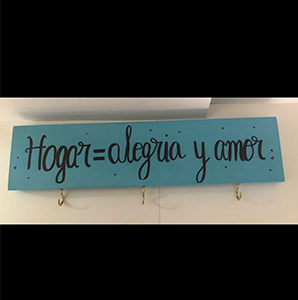 Hogar=alegria y amor